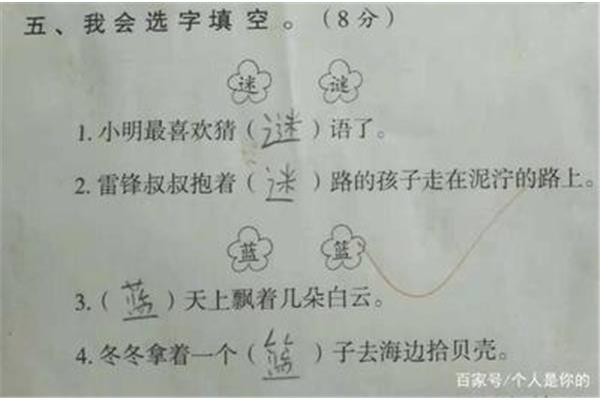 五、我会选字填空。（8分）
迷 谜
1.小明最喜欢猜（谜）语了。
2.雷锋叔叔抱着（迷）路的孩子走在泥泞的路上。
蓝 篮
3.（蓝）天上飘着几朵白云。
4.冬冬拿着一个（篮）子去海边拾贝壳。
百家号/个人是你的